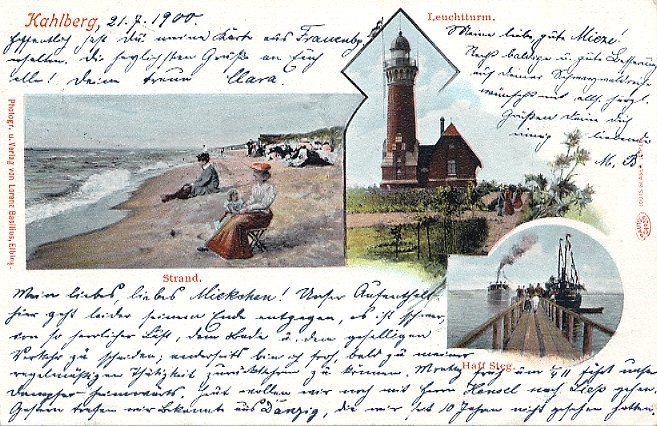 Kahlberg, 21.7.1900
Hoffentlich hast Du meine Karte aus Frauenbg.
erhalten. Die herzlichsten Grüße an Euch
alle! Deine treue Clara.
Leuchtturm.
Meine liebe, gute Mieze!
baldige u. gute Besserung
auf deiner
wünscht mit allh. herzl.
Grüßen Deine dich
innig liebende
M. B.
Photogr. u. Verlag von Lorenz Basilius, Elbing.
Strand.
Mein liebes, liebes Miekchen! Unser Aufenthalt
hier geht leider seinem Ende entgegen, es ist schwer
von so herrlicher Luft, dem Bade u. dem geselligen
Verkehr zu scheiden; anderseits bin ich froh, bald zu meiner
regelmäßigen Thätigkeit zurückkehren zu können.
Haff Steg.
Dampfer heimwärts. Heut wollen wir noch mit Herrn Hensel nach Liep gehen.
Gestern trafen wir Bekannte aus Danzig, die wir seit 10 Jahren nicht gesehen hatten.